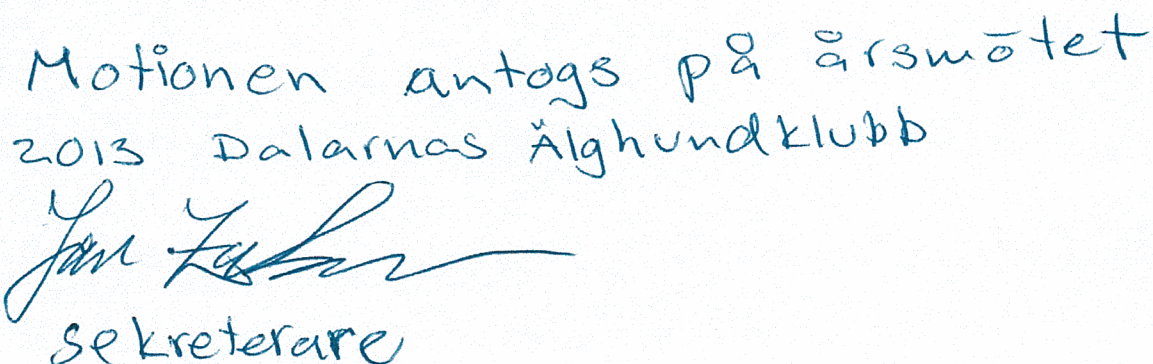 Motionen antogs på årsmötet
2013 Dalarnas Älghundklubb
Jan
sekreterare